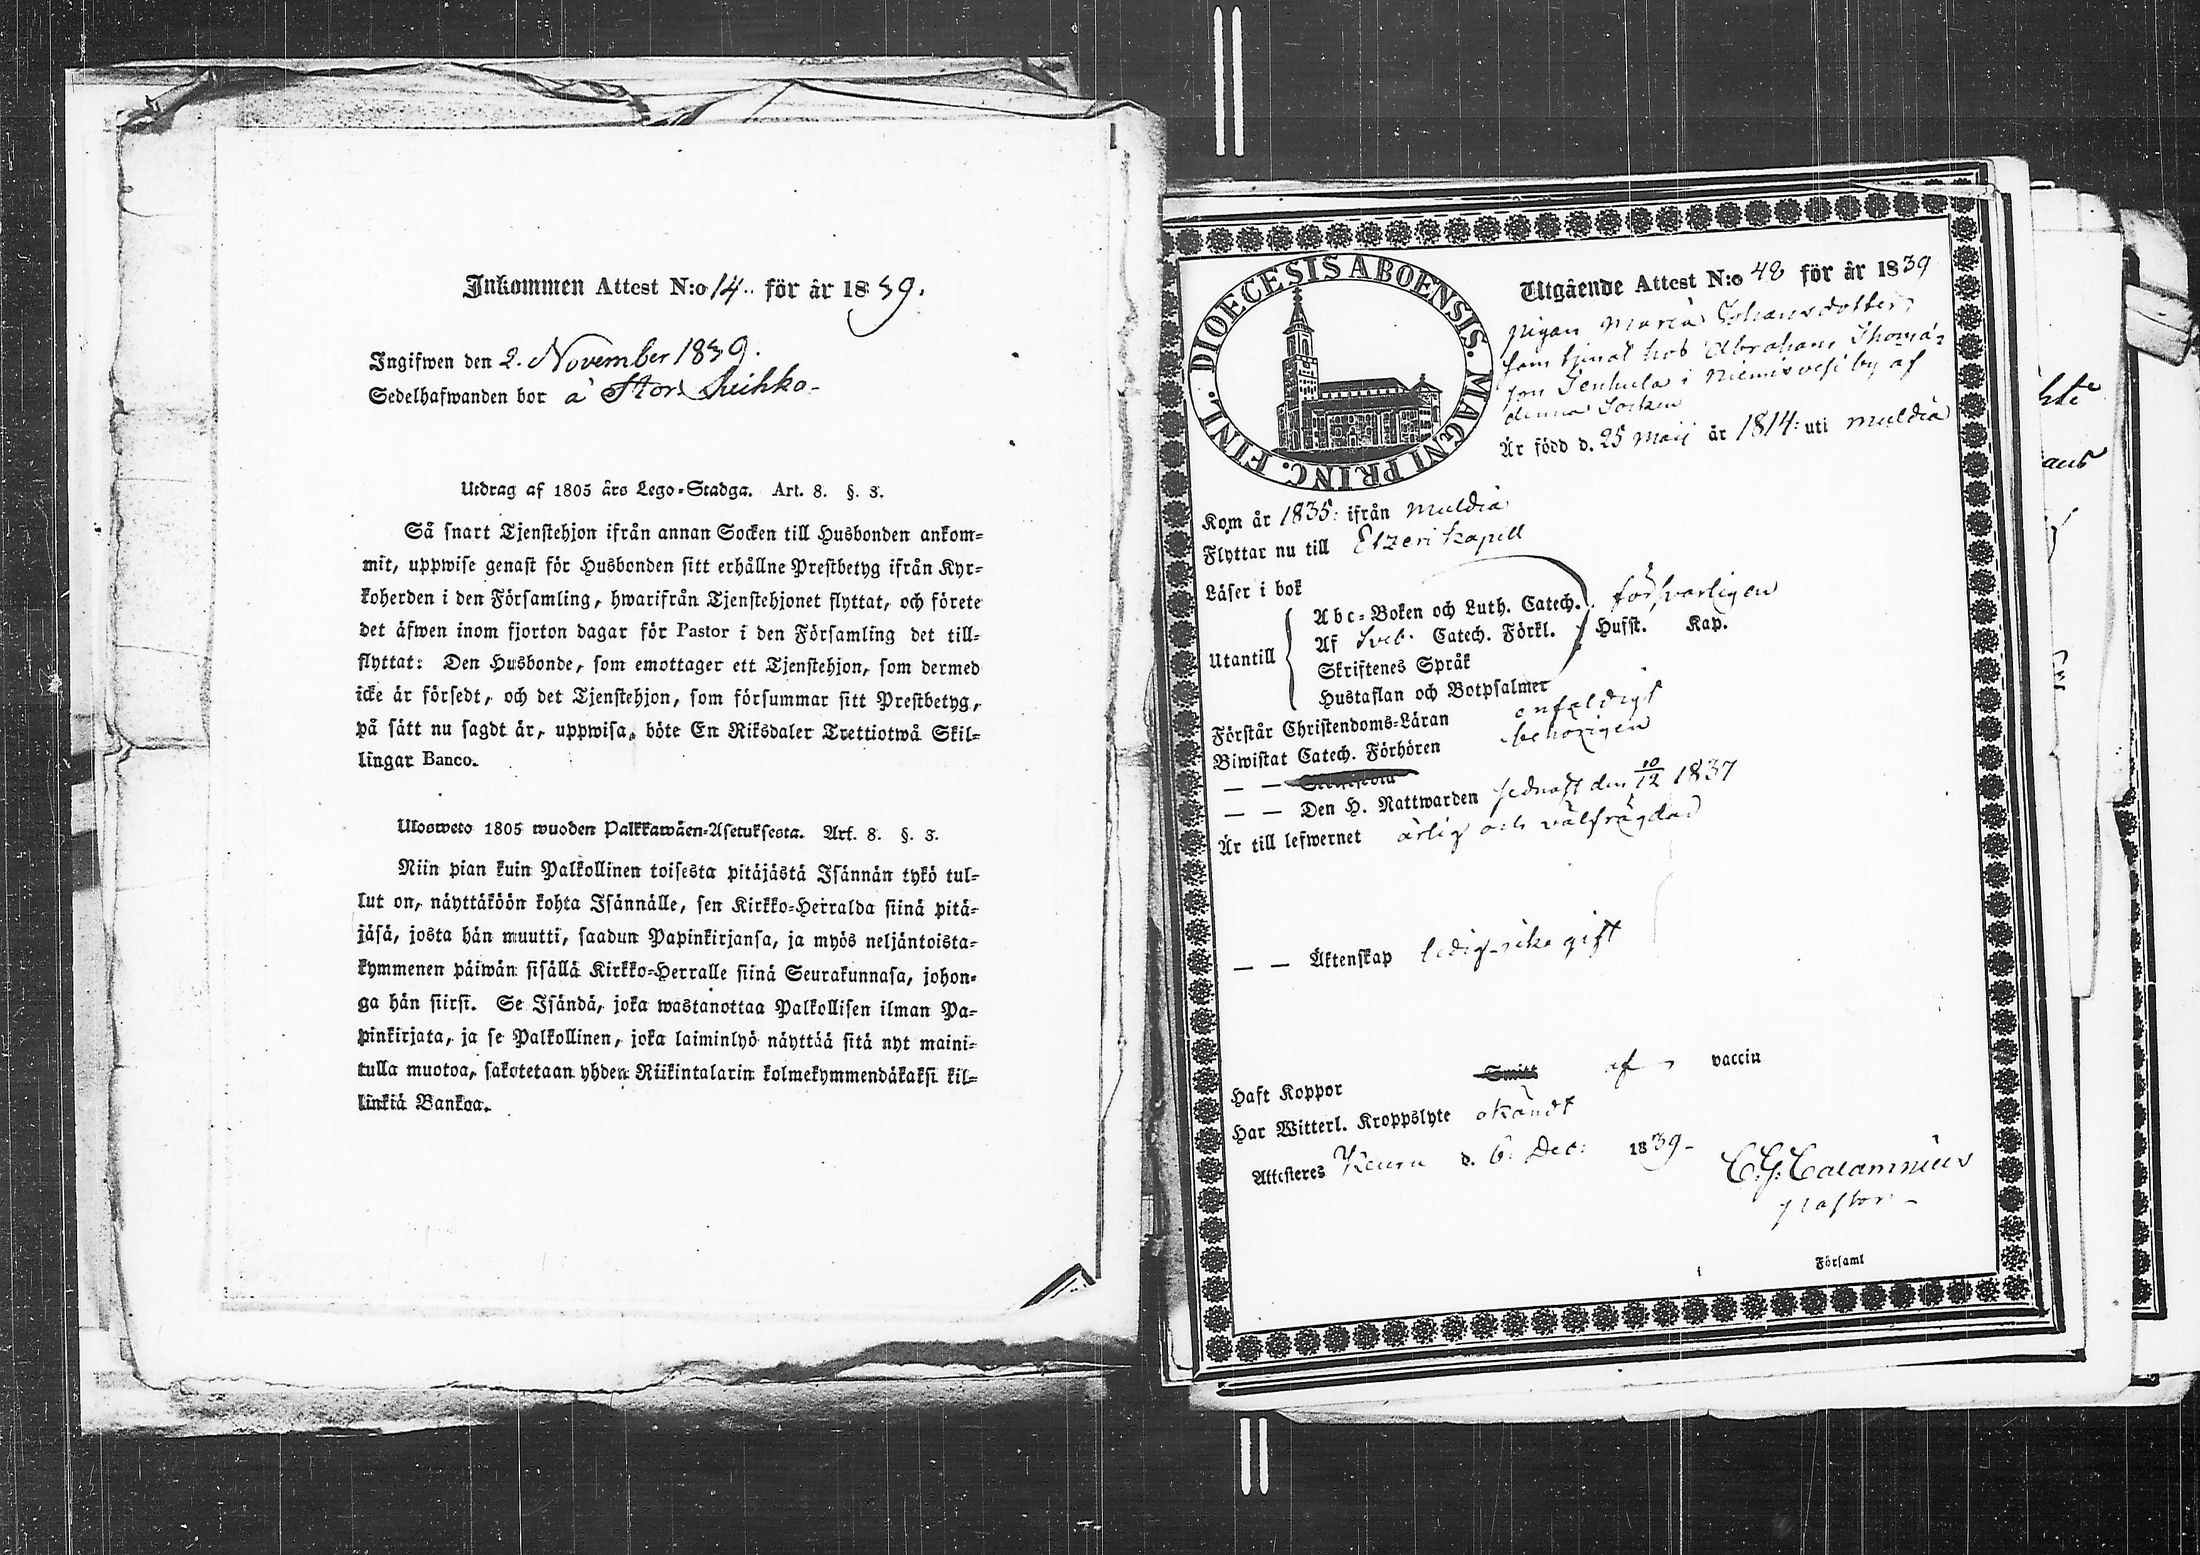 Inkommen Attest N:o 14. för år 1839.
Ingifwen den 2. November 1839.
Sedelhafwanden bor à Stor
Utdrag af 1805 års Lego-Stadga. Art. 8. §. 3.
Så snart Tjenstehjon ifrån annan Socken till Husbonden ankom-
mit, uppwise genast för Husbonden sitt erhållne Prestbetyg ifrån Kyr-
koherden i den Församling, hwarifrån Tjenstehjonet flyttat, och förete
det äfwen inom fjorton dagar för Pastor i den Församling det till-
flyttat: Den Husbonde, som emottager ett Tjenstehjon, som dermed
icke är försedt, och det Tjenstehjon, som försummar sitt Prestbetyg,
på sätt nu sagdt är, uppwisa, böte En Riksdaler Trettiotwå Skil-
lingar Banco.
Ulosweto 1805 wuoden Palkkawäen-Asetuksesta. Art. 8. §. 3.
Niin pian kuin Palkollinen toisesta pitäjästä Isännän tykö tul-
lut on, näyttäköön kohta Isännälle, sen Kirkko-Herralda siinä pitä-
jäsä, josta hän muutti, saadun Papinkirjansa, ja myös neljäntoista-
kymmenen päiwän sisällä Kirkko-Herralle siinä Seurakunnasa, johon-
ga hän siirsi. Se Isändä, joka wastanottaa Palkollisen ilman Pa-
pinkirjata, ja se Palkollinen, joka laiminlyö näyttää sitä nyt maini-
tulla muotoa, sakotetaan yhden Riikintalarin kolmekymmendäkaksi kil-
linkiä Bankoa.
DIOECESIS ABOENSIS. MAGNI PRINC. FINL.
Utgående Attest N:o 48 för år 1839
pigan Maria Johansdotter,
som tjenat hos Abraham Thomas-
son Jenhula i Niemisvesi by af
denna Socken
Är född d. 25 Maij år 1814: uti Muldia
Kom år 1835: ifrån Muldia
Flyttar nu till Etzeri Kapell
Läser i bok
Utantill
Abc-Boken och Luth. Catech. försvarligen
Af Sveb. Catech. Förkl. Husst. Kap.
Skriftenes Språk
Hustaflan och Botpsalmer
Förstår Christendoms-Läran enfaldigt
Biwistat Catech. Förhören behörigen
— — Den H. Nattwarden sednast den 10/12 1837
Är till lefwernet ärlig och välfrägdad
— — Äktenskap ledig icke gift
Haft Koppor Smitt af vaccin
Har Witterl. Kroppslyte okändt
Attesteres Keuru d. 6. Dec: 1839
C.G. Calamnius
pastor
Församl